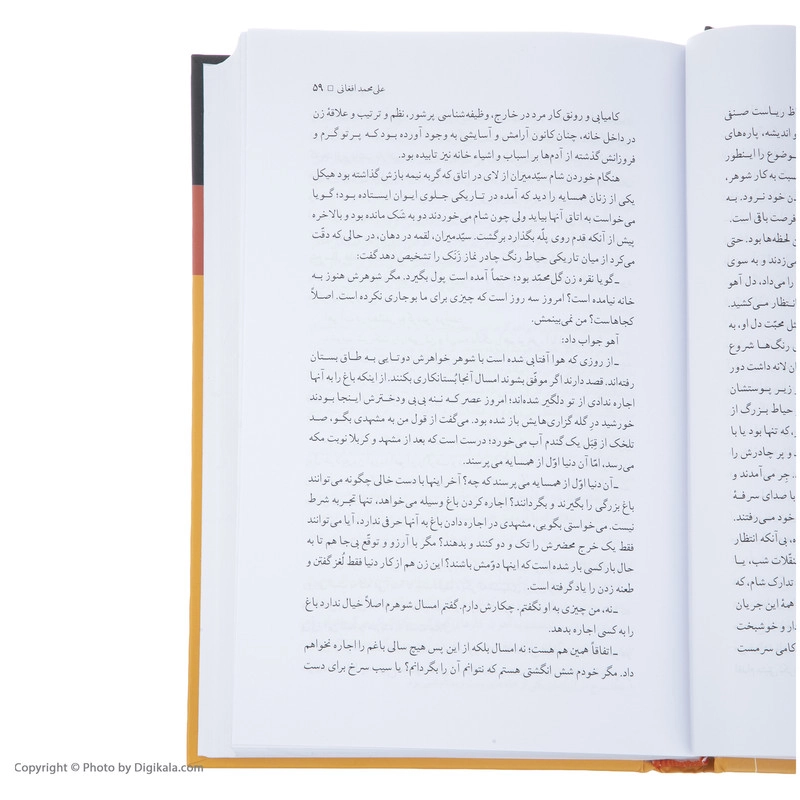 علی‌محمد افغانی □ ۵۹
کامیابی و رونق کار مرد در خارج، وظیفه‌شناسی پرشور، نظم و ترتیب و علاقهٔ زن
در داخل خانه، چنان کانون آرامش و آسایشی به وجود آورده بود که پرتو گرم و
فروزانش گذشته از آدم‌ها بر اسباب و اشیاء خانه نیز تابیده بود.
هنگام خوردن شام سیّدمیران از لای در اتاق که گربه نیمه بازش گذاشته بود هیکل
یکی از زنان همسایه را دید که آمده در تاریکی جلوی ایوان ایستاده بود؛ گویا
می‌خواست به اتاق آنها بیاید ولی چون شام می‌خوردند دو به شک مانده بود و بالاخره
پیش از آنکه قدم روی پلّه بگذارد برگشت. سیّدمیران، لقمه در دهان، در حالی که دقّت
می‌کرد از میان تاریکی حیاط رنگ چادر نماز زنک را تشخیص دهد گفت:
ـ گویا نقره زن گل‌محمّد بود؛ حتماً آمده است پول بگیرد. مگر شوهرش هنوز به
خانه نیامده است؟ امروز سه روز است که چیزی برای ما بوجاری نکرده است. اصلاً
کجاهاست؟ من نمی‌بینمش.
آهو جواب داد:
ـ از روزی که هوا آفتابی شده است با شوهر خواهرش دوتایی به طاق بستان
رفته‌اند. قصد دارند اگر موفّق بشوند امسال آنجا بُستانکاری بکنند. از اینکه باغ را به آنها
اجاره ندادی از تو دلگیر شده‌اند؛ امروز عصر که ننه بی‌بی ودخترش اینجا بودند
خورشید درِ گله گزاری‌هایش باز شده بود. می‌گفت از قول من به مشهدی بگو، صد
تلخک از قِبَل یک گندم آب می‌خورد؛ درست است که بعد از مشهد و کربلا نوبت مکه
می‌رسد، امّا آن دنیا اوّل از همسایه می‌پرسند.
ـ آن دنیا اوّل از همسایه می‌پرسند که چه؟ آخر اینها با دست خالی چگونه می‌توانند
باغ بزرگی را بگیرند و بگردانند؟ اجاره کردن باغ وسیله می‌خواهد، تنها تجربه شرط
نیست. می‌خواستی بگویی، مشهدی در اجاره دادن باغ به آنها حرفی ندارد، آیا می‌توانند
فقط یک خرج محضرش را تک و دو کنند و بدهند؟ مگر با آرزو و توقّع بی‌جا هم تا به
حال بار کسی بار شده است که اینها دوّمش باشند؟ این زن هم از کار دنیا فقط لُغز گفتن و
طعنه زدن را یاد گرفته است.
ـ نه، من چیزی به او نگفتم. چکارش دارم. گفتم امسال شوهرم اصلاً خیال ندارد باغ
را به کسی اجاره بدهد.
ـ اتفاقاً همین هم هست؛ نه امسال بلکه از این پس هیچ سالی باغم را اجاره نخواهم
داد. مگر خودم شش انگشتی هستم که نتوانم آن را بگردانم؟ یا سیب سرخ برای دست
ظ ریاست صنفی
و اندیشه، پاره‌های
وضوع را اینطور
سبت به کار شوهر،
دن خود نرود. به
فرصت باقی است.
ن لحظه‌ها بود. حتی
می‌زدند و به سوی
را می‌داد، دل آهو
انتظار می‌کشید.
ثل محبّت دل او، به
ی رنگ‌ها شروع
ان لانه داشت دور
ر زیر پوستشان
حیاط بزرگ از
، که تنها بود یا با
د و پر چادرش را
، جِر می‌آمدند و
با صدای سرفهٔ
خود می‌رفتند.
ه، بی‌آنکه انتظار
نقّلات شب، یا
تدارک شام، که
همهٔ این جریان
دار و خوشبخت
کامی سرمست
Copyright © Photo by Digikala.com